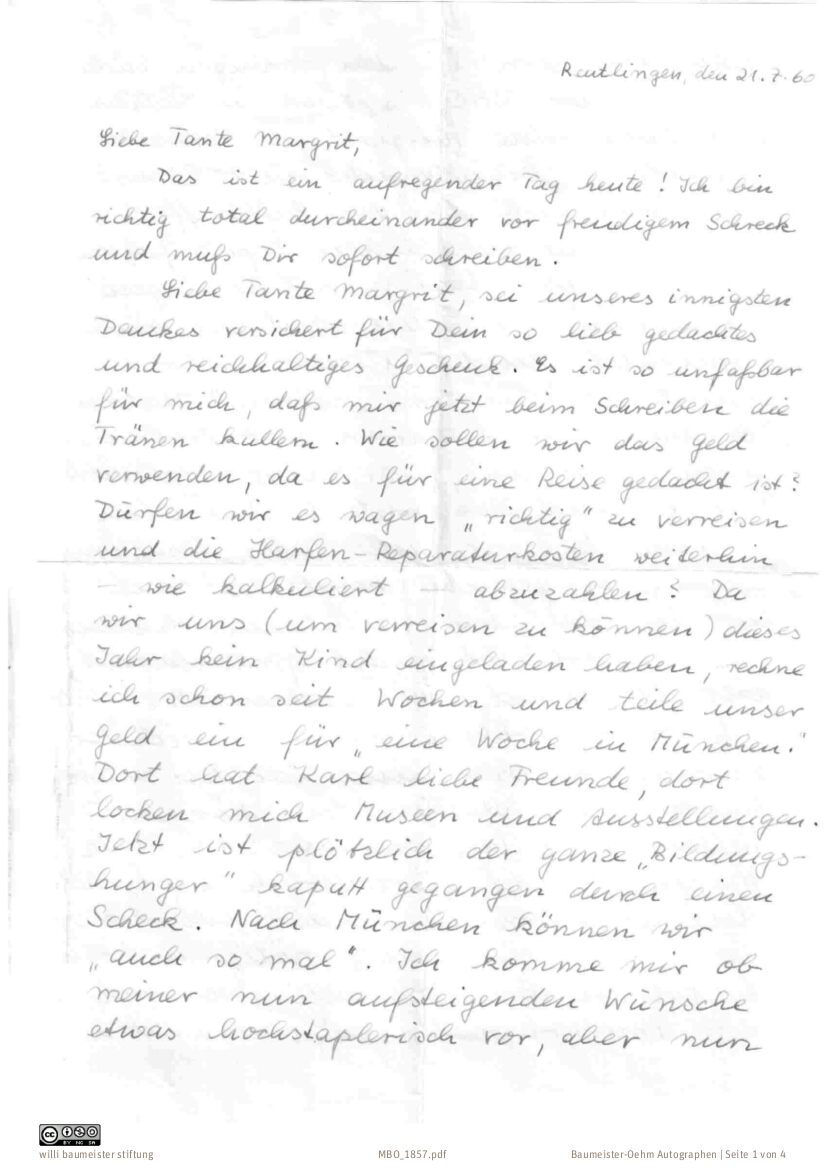 Reutlingen, den 21.7.60
Liebe Tante Margrit,
Das ist ein aufregender Tag heute! Ich bin
richtig total durcheinander vor freudigem Schreck
und muß Dir sofort schreiben.
Liebe Tante Margrit, sei unseres innigsten
Dankes versichert für Dein so lieb gedachtes
und reichhaltiges Geschenk. Es ist so unfaßbar
für mich, daß mir jetzt beim Schreiben die
Tränen kullern. Wie sollen wir das Geld
verwenden, da es für eine Reise gedacht ist?
Dürfen wir es wagen „richtig" zu verreisen
und die Harfen-Reparaturkosten weiterhin
– wie kalkuliert – abzuzahlen? Da
wir uns (um verreisen zu können) dieses
Jahr kein Kind eingeladen haben, rechne
ich schon seit Wochen und teile unser
Geld ein für „eine Woche in München."
Dort hat Karl liebe Freunde, dort
locken mich Museen und Ausstellungen.
Jetzt ist plötzlich der ganze „Bildungs-
hunger" kaputt gegangen durch einen
Scheck. Nach München können wir
„auch so mal". Ich komme mir ob
meiner nun aufsteigenden Wünsche
etwas hochstaplerisch vor, aber nun
cc BY NC SA
willi baumeister stiftung MBO_1857.pdf Baumeister-Oehm Autographen | Seite 1 von 4